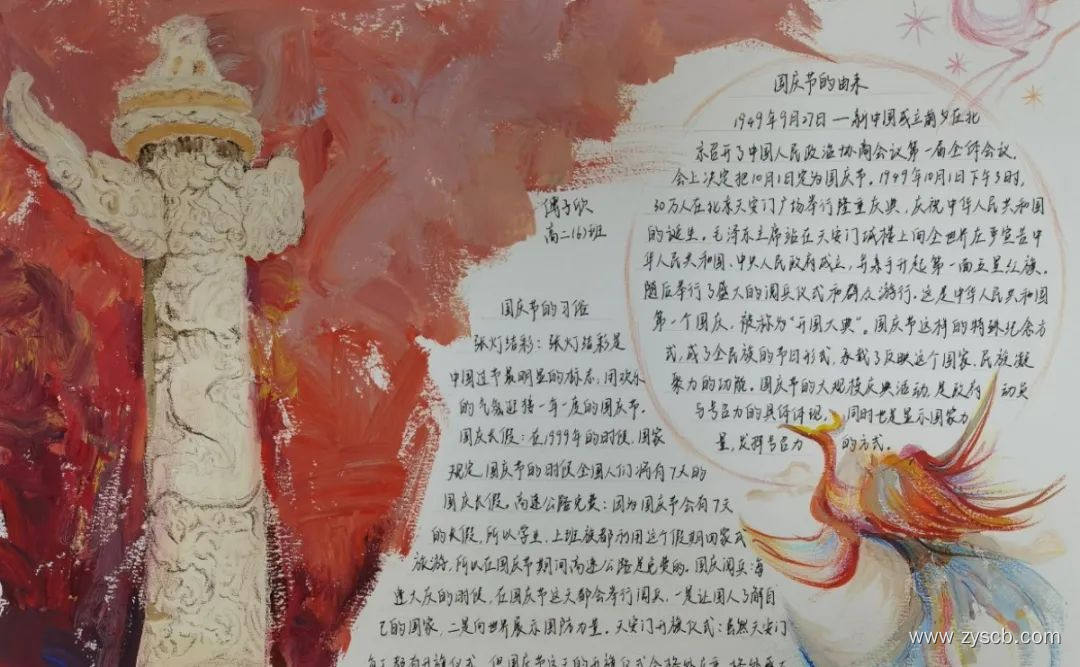 国庆节的由来
1949年9月27日—新中国成立前夕在北
京召开了中国人民政治协商会议第一届全体会议，
会上决定把10月1日定为国庆节。1949年10月1日下午3时，
30万人在北京天安门广场举行隆重庆典，庆祝中华人民共和国
的诞生。毛泽东主席站在天安门城楼上向全世界庄严宣告中
华人民共和国、中央人民政府成立，并亲手升起第一面五星红旗。
随后举行了盛大的阅兵仪式和群众游行。这是中华人民共和国
第一个国庆，被称为“开国大典”。国庆节这种的特殊纪念方
式，成了全民族的节日形式，承载了反映这个国家、民族凝
聚力的功能。国庆节的大规模庆典活动，是政府 动员
与号召力的具体体现， 同时也是显示国家力
量，发挥号召力 的方式。
傅子欣
高二(6)班
国庆节的习俗
张灯结彩：张灯结彩是
中国过节最明显的标志，用欢乐
的气氛迎接一年一度的国庆节。
国庆长假：在1999年的时候，国家
规定，国庆节的时候全国人们将有7天的
国庆长假。高速公路免费：因为国庆节会有7天
的长假，所以学生，上班族都利用这个假期回家或
旅游，所以在国庆节期间高速公路是免费的。国庆阅兵：每
逢大庆的时候，在国庆节这天都会举行阅兵，一是让国人了解自
己的国家，二是向世界展示国防力量。天安门升旗仪式：虽然天安门
每天都有升旗仪式，但国庆节这天的升旗仪式会格外庄重
www.zyscb.com